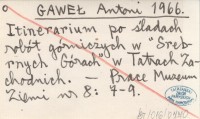 GAWEŁ Antoni 1966.
Itinerarium po śladach
robót górniczych w "Sreb-
rnych Górach" w Tatrach Za-
chodnich. — Prace Museum
Ziemi nr 8: 7-9.